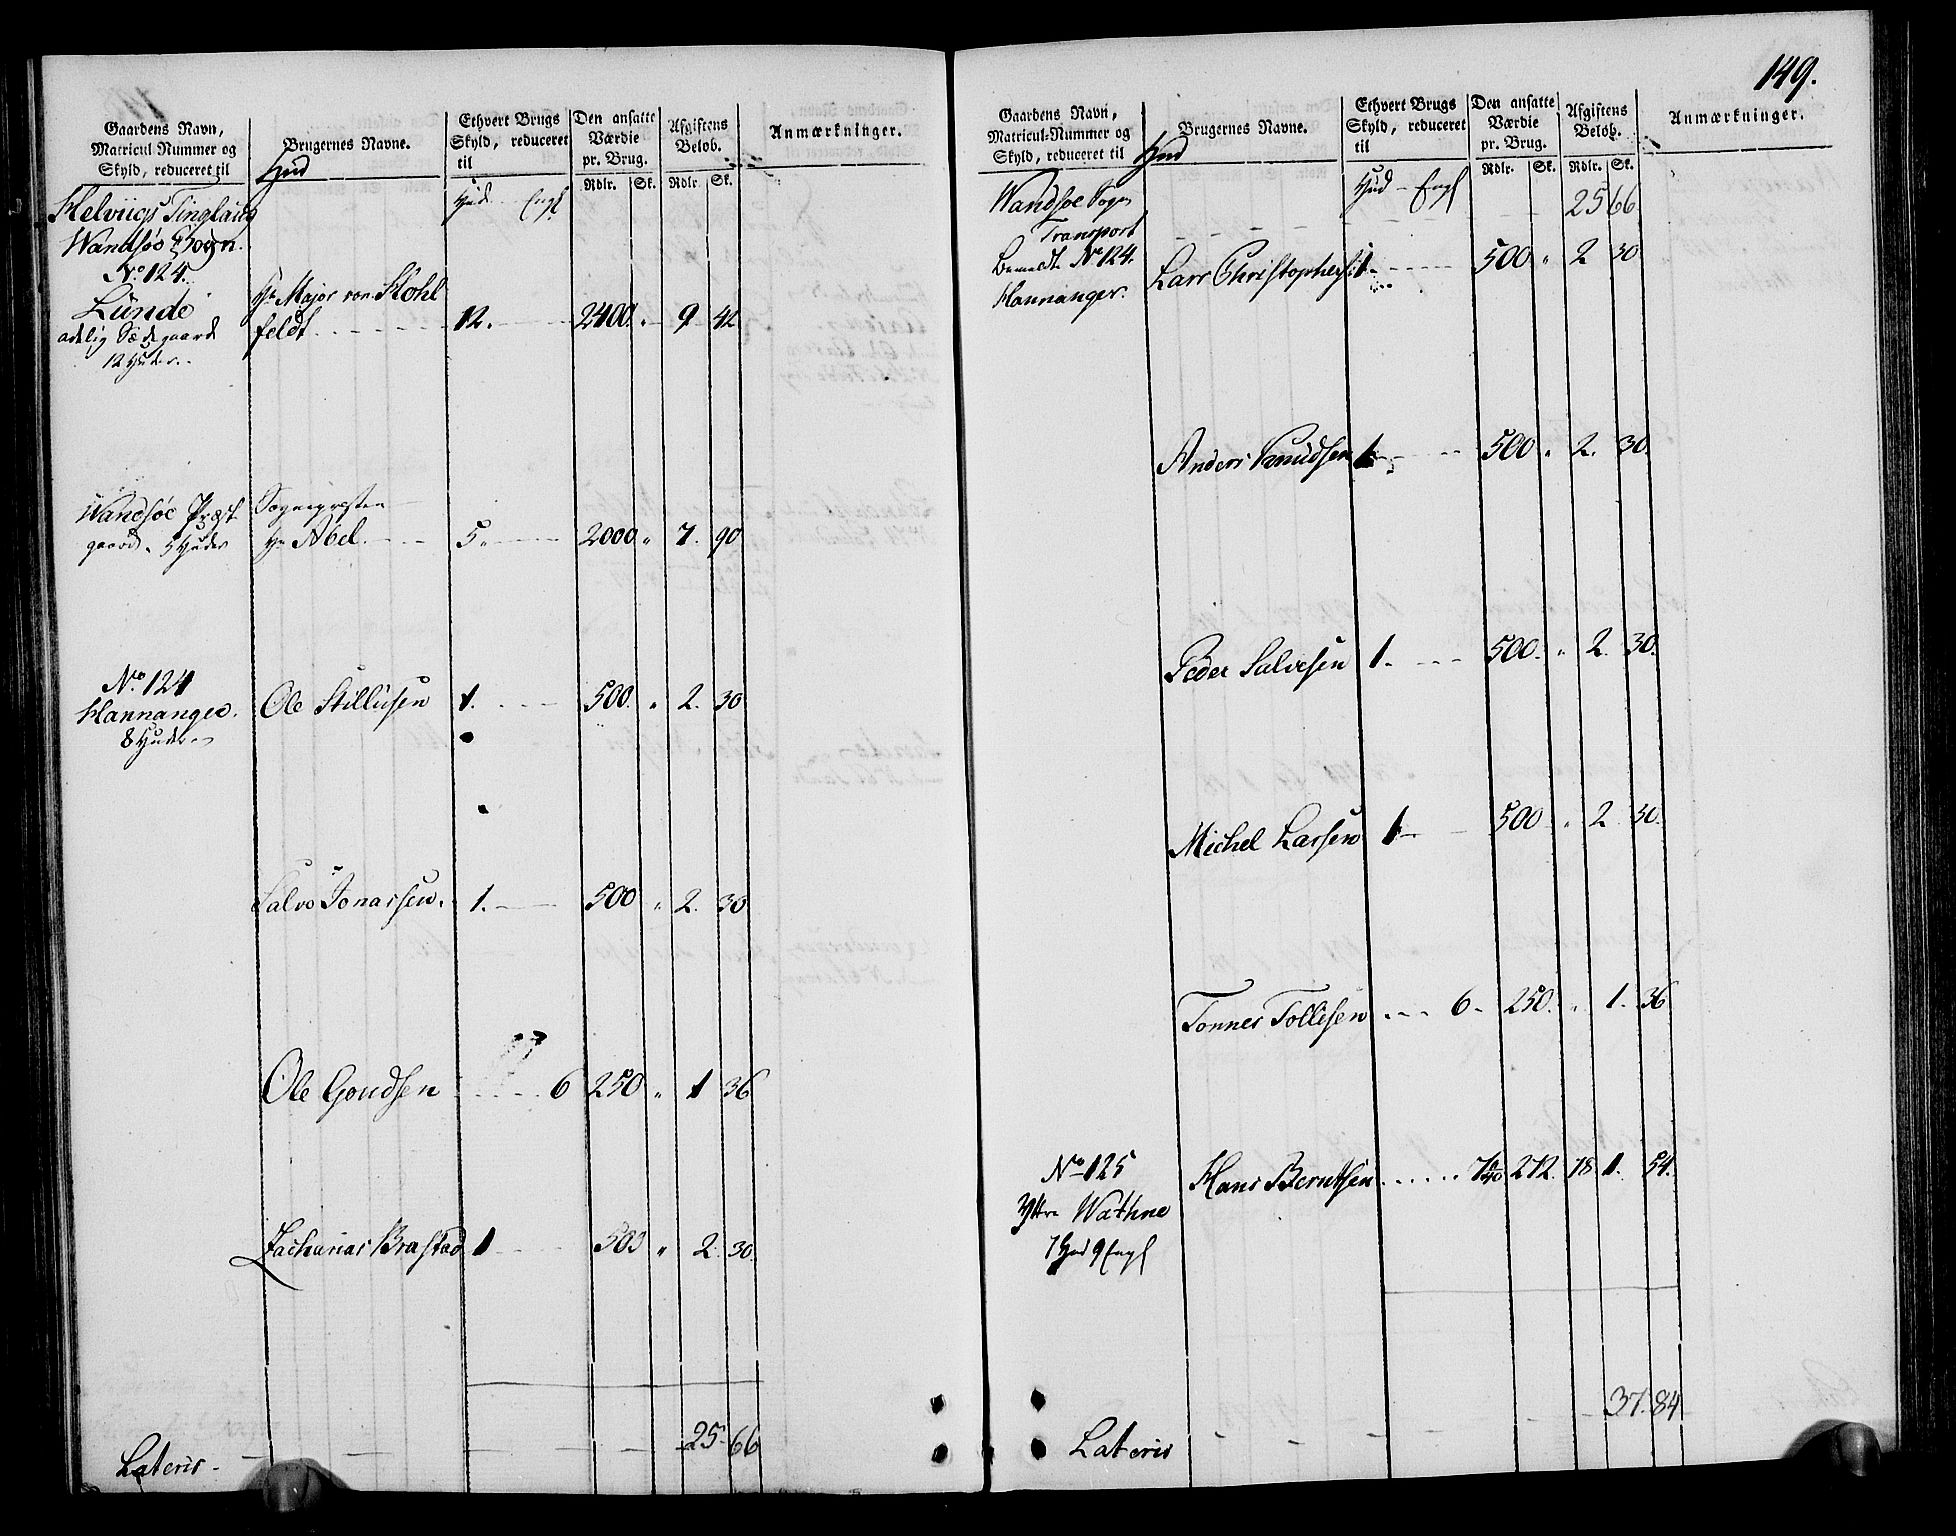 Gaardens Navn,
Matricul Nummer og
Skyld, reduceret til
Brugernes Navne.
Hud
Ethvert Brugs
Skyld, reduceret
til
Den ansatte
Værdie
pr. Brug.
Rdlr. Sk.
Afgiftens
Beløb.
Rdlr. Sk.
Anmærkninger.
Helviigs Tinglaug Hud Engl
Wandsøe Sogn.
No. 124.
Lunde
adelig Sædegaard
12 Huder.
Hr. Major von Stohl
feldt. 12. 2400. " 9 42
Wandsøe Præst
gaard. 5 Huder
Sognepresten
Hr Abel. 5. 2000 " 7. 90
No. 124
Hannanger.
8 Huder.
Ole Stillufsen 1. 500. " 2. 30
Salve Jonassen. 1. 500 " 2. 30
Ole Goudsen 6 250 " 1 36
Zacharias Brastad 1 500 " 2. 30.
Lateris 25 66
149.
Gaardens Navn,
Matricul-Nummer og
Skyld, reduceret til
Brugernes Navne.
Hud
Ethvert Brugs
Skyld, reduceret
til
Den ansatte
Værdie
pr. Brug.
Rdlr. Sk.
Afgiftens
Beløb.
Rdlr. Sk.
Anmærkninger.
Wandsøe Sogn Hud Engl
Transport 25 66
Bemeldte No 124.
Hannanger.
Lars Christophers: 1. 500 " 2 30
Anders Knudsen 1. 500 " 2. 30.
Peder Salvesen 1. 500. " 2. 30.
Michel Larsen 1 500 " 2 30.
Tonnes Tollisen 6 250. " 1. 36
No 125
Yttre Wathne
1 Hud 9 Engl
Hans Berntsen 272. 78 1. 54.
37. 84
Lateris